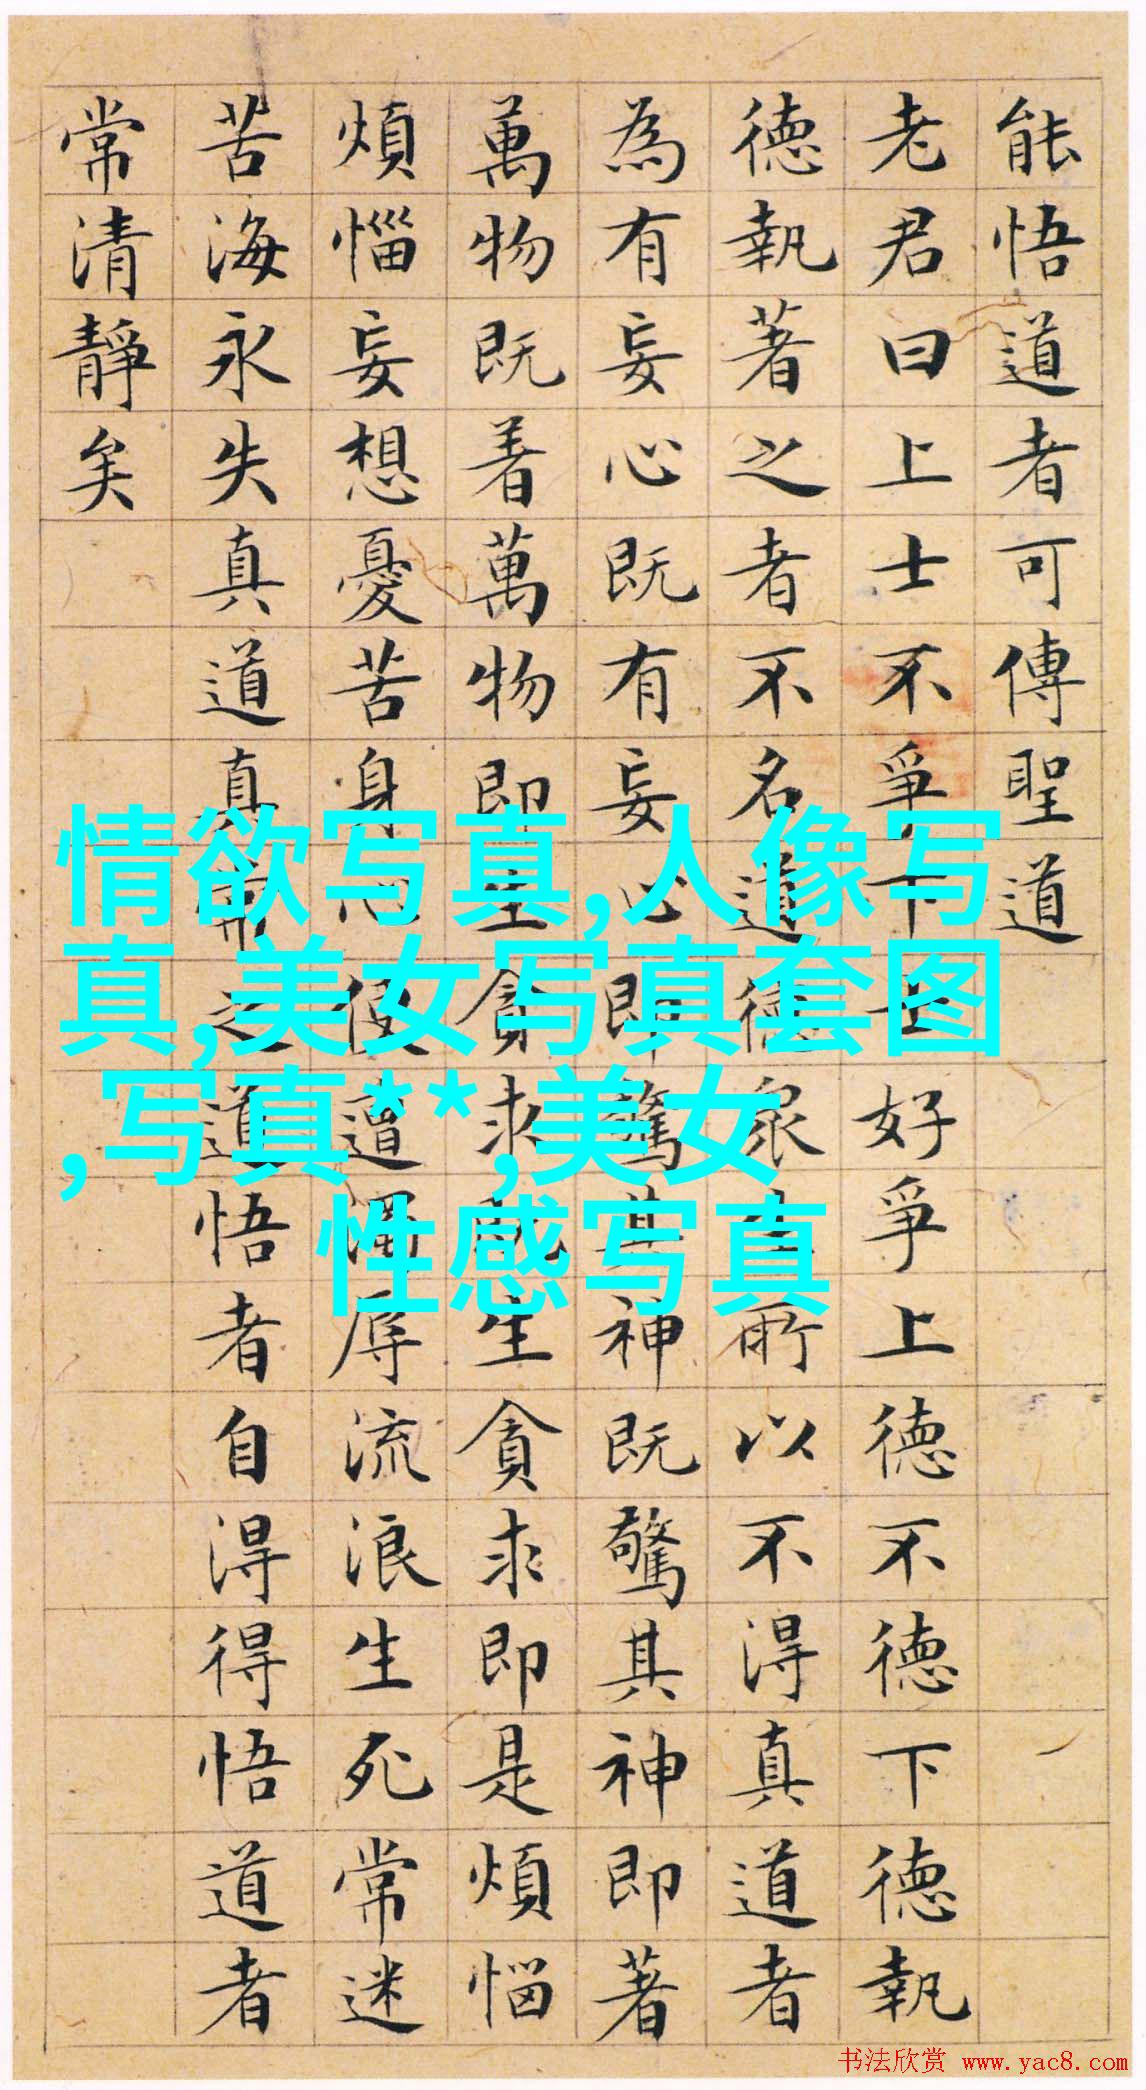 能悟道者可傳聖道
老君曰上士不爭下士好爭上德不德下德執
德執著之者不名道德衆生所以不淂真道者
為有妄心既有妄心即驚其神既驚其神即著
萬物既着萬物即生貪求既生貪求即是煩惱
煩惱妄想憂苦身心便遭濁辱流浪生死常迷
苦海永失真道真常之道悟者自淂得悟道者
常清靜矣
情欲写真,人像写
真,美女写真套图
,写真**,美女
性感写真
书法欣赏 www.yac8.com